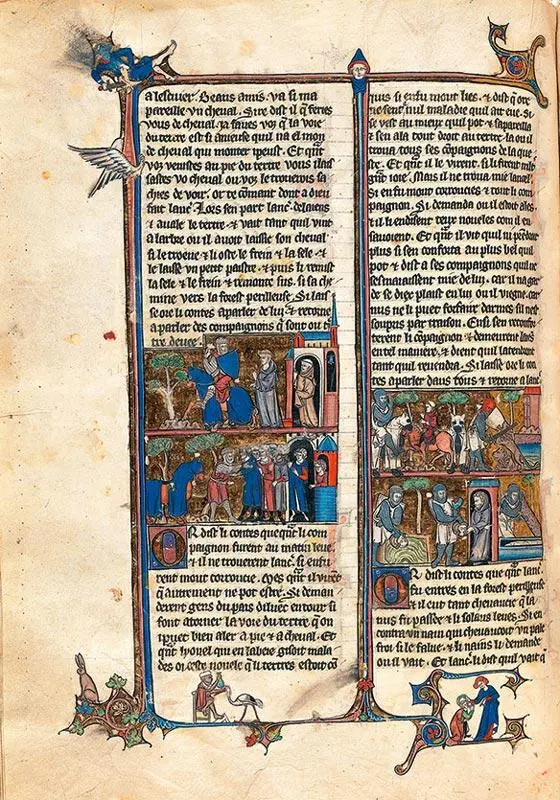 a lescuier. Beaus amis. va si ma
pareille vn cheual. Sire dist il q̄ feries
vous de cheual. ja saues voꝫ q̄ la voie
du tertre est si anieuse quil na el mon
de cheual qui monter ipeust. Et quāt
voꝫ venistes au pie du tertre vous i lais
sastes vo cheual ou voꝫ le trouerois sa
chies de voir. or te comant dont a dieu
fait lanc̄. Lors sen part lanc̄. de laiens
⁊ auale le tertre. ⁊ vait tant quil vint
a larbre ou il auoit laissie son cheual
si le troeue ⁊ li oste le frein ⁊ la sele. ⁊
le laisse vn petit paistre. ⁊ puis li remist
la sele ⁊ le frein ⁊ remonte sus. si sa che
mine vers la forest perilleuse. Si lais
se ore li contes a parler de lui. ⁊ retorne
a parler des compaignons q̄ sont ou t
tre deuee.
OR dist li contes que quāt li com
paignon furent au matin leue.
⁊ il ne trouerent lanc̄. si enfu
rent mout corrouciē. Mes quāt il virēt
q̄ autrement ne pot estre. Si deman
derent gens du pais diluec entour si
font atorner la voie du tertre q̄ on
i puet bien aler a pie ⁊ a cheual. Et
quāt lyonel qui en labeie gisoit mala
des oi ceste nouele q̄ li tertres estoit cō
quis si enfu mout lies. ⁊ dist q̄ ore
ne sent nul malade quil ait eue. Si
se vest au mieus quil pot ⁊ sapareilla
⁊ sen ala tout droit au tertre. la ou il
troua tous ses cōpaignons de la que
ste. Et quāt il le virent. si li firent mlt
grāt ioie. Mais il ne troua mie lancel̄.
Si en fu mont corroucies ⁊ tout li com
paignon. Si demanda ou il estoit ales.
⁊ il li endisent teux noueles com il en
sauoient. Et quāt il vit quil ni pēdoit
plus si sen conforta au plus bel quil
pot ⁊ dist a ses compaignons quil ne
sesmaiaissent mie de lui. car il na gar
de se dieu plaist en lui ou il viegne. car
nus ne li puet forfait darmes sil nest
soupris par traison. Ensi sen reconfor
terent li cōpaignon ⁊ demeurent laiēs
en tel maniere. ⁊ dient quil latendront
tant quil reuendra. Si laisse ore li con
tes a parler dans tous ⁊ retorne a lanc̄
OR dist li contes que quāt lanc̄.
fu entres en la forest perilleuse
⁊ il eut tant cheuaucie q̄ la
nus fu passee ⁊ li solaus leues. Si en
contra vn nain qui cheuaucoit vn pale
froi. si le salue. ⁊ li nains li demande
ou il vait. Et lanc̄. li dist quil vait q̄